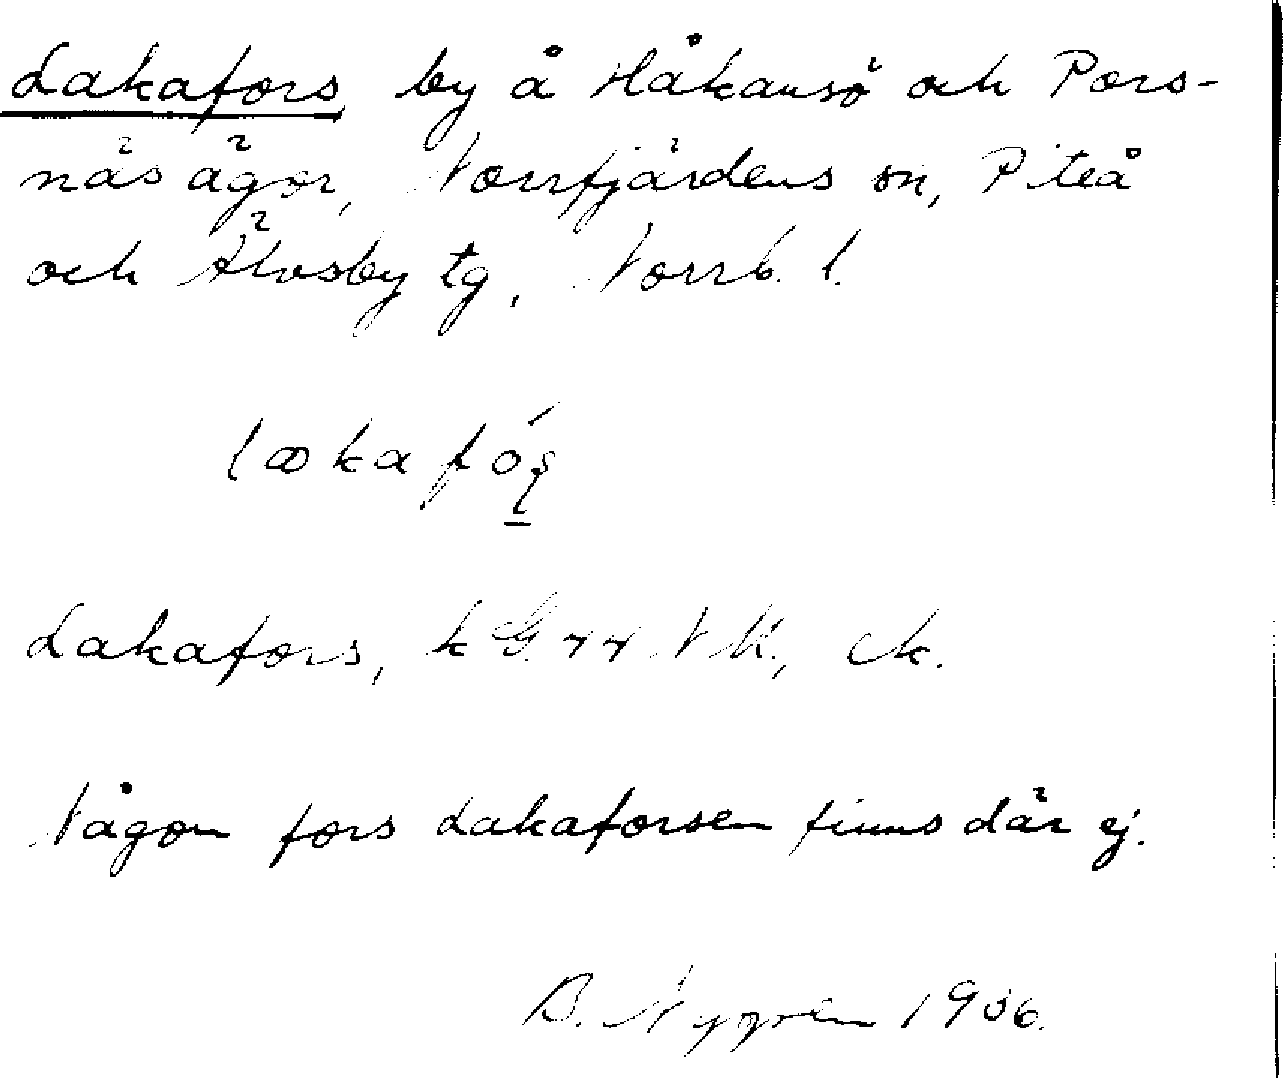 Lakafors by å Håkansö och Pors-
näs ägor, Norrfjärdens sn, Piteå
och Älvsby tg, Norrb. l.
lækafós
Lakafors, k G. NK, ek.
Någon fors Lakaforsen finns där ej.
B. Nygren 1936.